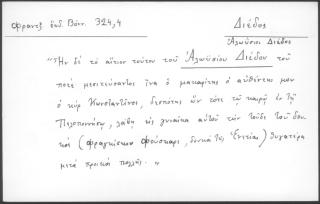 Φραντζ. ἐκδ. Βόνν. 324,4
Διέδος
Ἀλωύσιος Διέδος
"Ἦν δὲ τὸ αἴτιον τούτου τοῦ Ἀλωϋσίου Διέδου τοῦ
ποτὲ μεσιτεύσαντος ἵνα ὁ μακαρίτης ὁ αὐθέντης μου
ὁ κὺρ Κωνσταντῖνος, δεσπότης ὢν τότε τῷ καιρῷ ἐν τῇ
Πελοποννήσῳ, λάβῃ εἰς γυναῖκα αὐτοῦ τὴν τοῦδε τοῦ δου-
κὸς (Φραγκίσκου Φούσκαρι, δουκὸς τῆς Ἐνετίας) θυγατέρα
μετὰ προικὸς πολλῆς. "